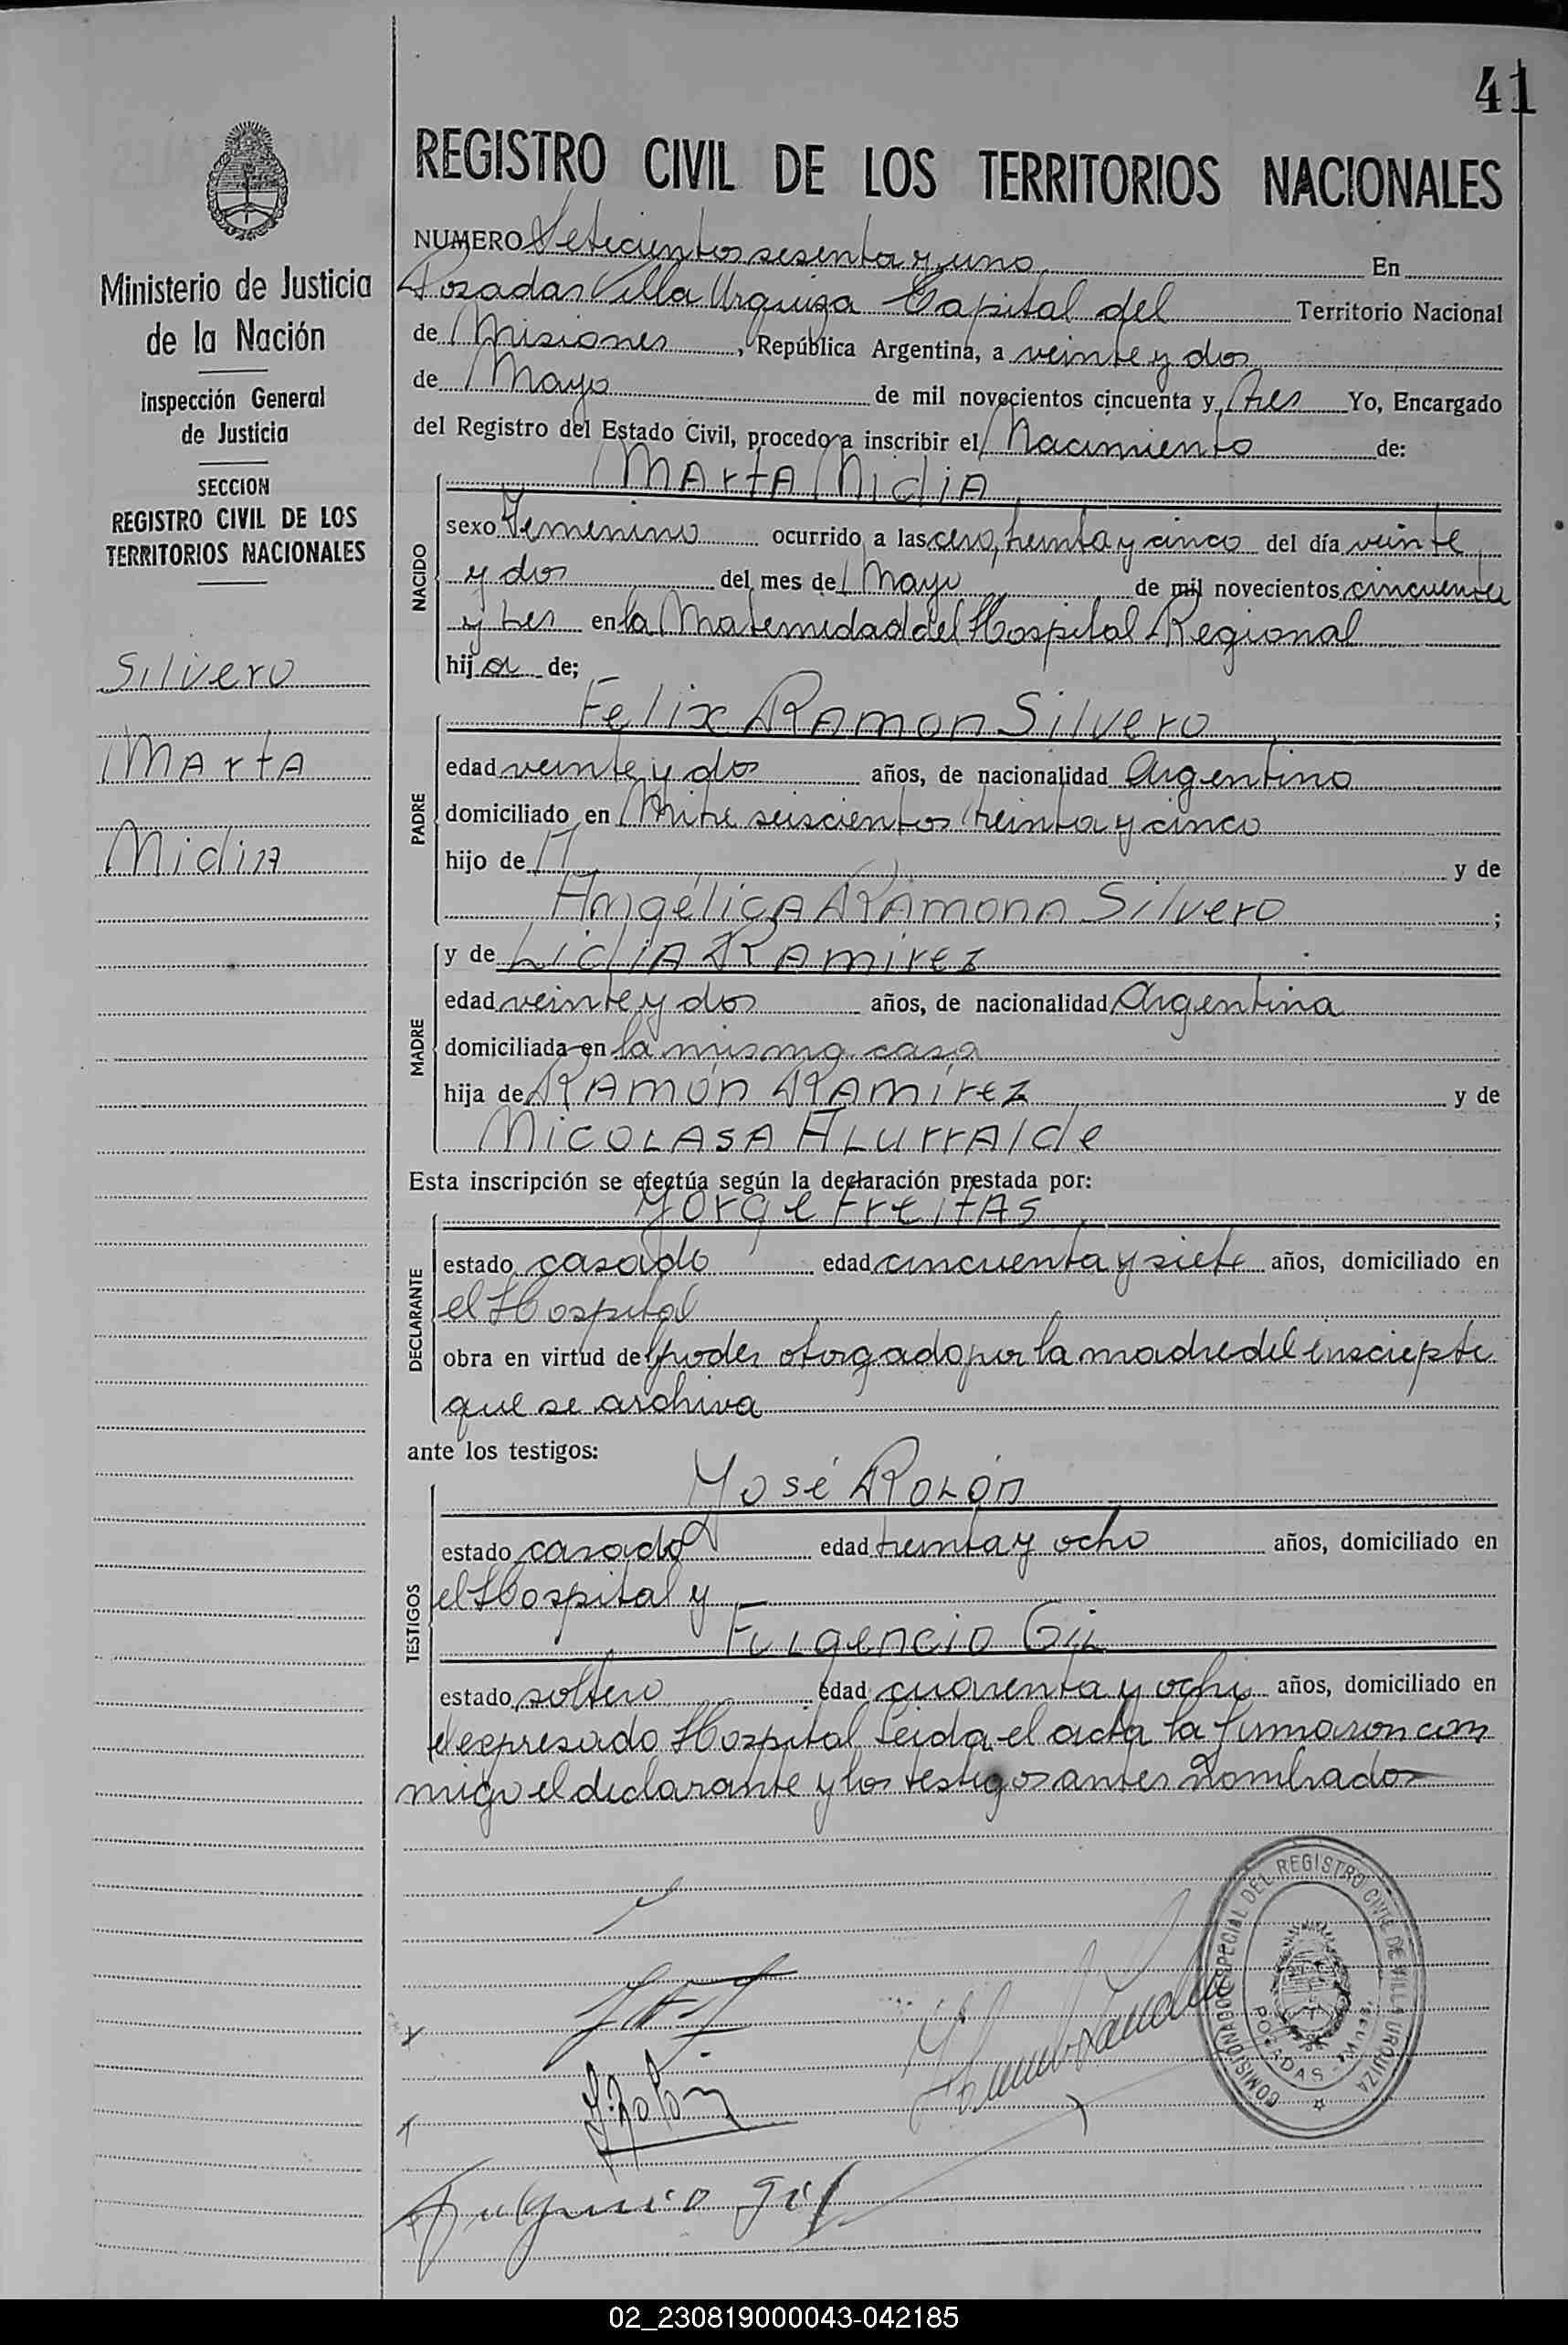 41
Ministerio de Justicia
de la Nación
Inspección General
de Justicia
SECCION
REGISTRO CIVIL DE LOS
TERRITORIOS NACIONALES
Silvero
Marta
Nidia
REGISTRO CIVIL DE LOS TERRITORIOS NACIONALES
NUMERO Setecientos sesenta y uno En
Posadas Villa Urquiza Capital del Territorio Nacional
de Misiones, República Argentina, a veinte y dos
de Mayo de mil novecientos cincuenta y tres Yo, Encargado
del Registro del Estado Civil, procedo a inscribir el Nacimiento de:
Marta Nidia
NACIDO
sexo Femenino ocurrido a las cero, treinta y cinco del día veinte
y dos del mes de Mayo de mil novecientos cincuenta
y tres en la Maternidad del Hospital Regional
hija de;
Felix Ramon Silvero
PADRE
edad veinte y dos años, de nacionalidad Argentino
domiciliado en Mitre seiscientos treinta y cinco
hijo de y de
Angélica Ramona Silvero ;
MADRE
y de Lidia Ramirez
edad veinte y dos años, de nacionalidad Argentina
domiciliada en la misma casa
hija de Ramón Ramírez y de
Nicolasa Alurralde
Esta inscripción se efectúa según la declaración prestada por:
Jorge Freitas
DECLARANTE
estado casado edad cincuenta y siete años, domiciliado en
el Hospital
obra en virtud del poder otorgado por la madre del inscripto
que se archiva
ante los testigos:
José Rolón
TESTIGOS
estado casado edad treinta y ocho años, domiciliado en
el Hospital y
Fulgencio Gil
estado soltero edad cuarenta y ocho años, domiciliado en
el expresado Hospital Leida el acta la firmaron con
migo el declarante y los testigos antes nombrados
COMISIONADO ESPECIAL DEL REGISTRO CIVIL DE VILLA URQUIZA
POSADAS
J. Rolón
Fulgencio Gil
02_230819000043-042185